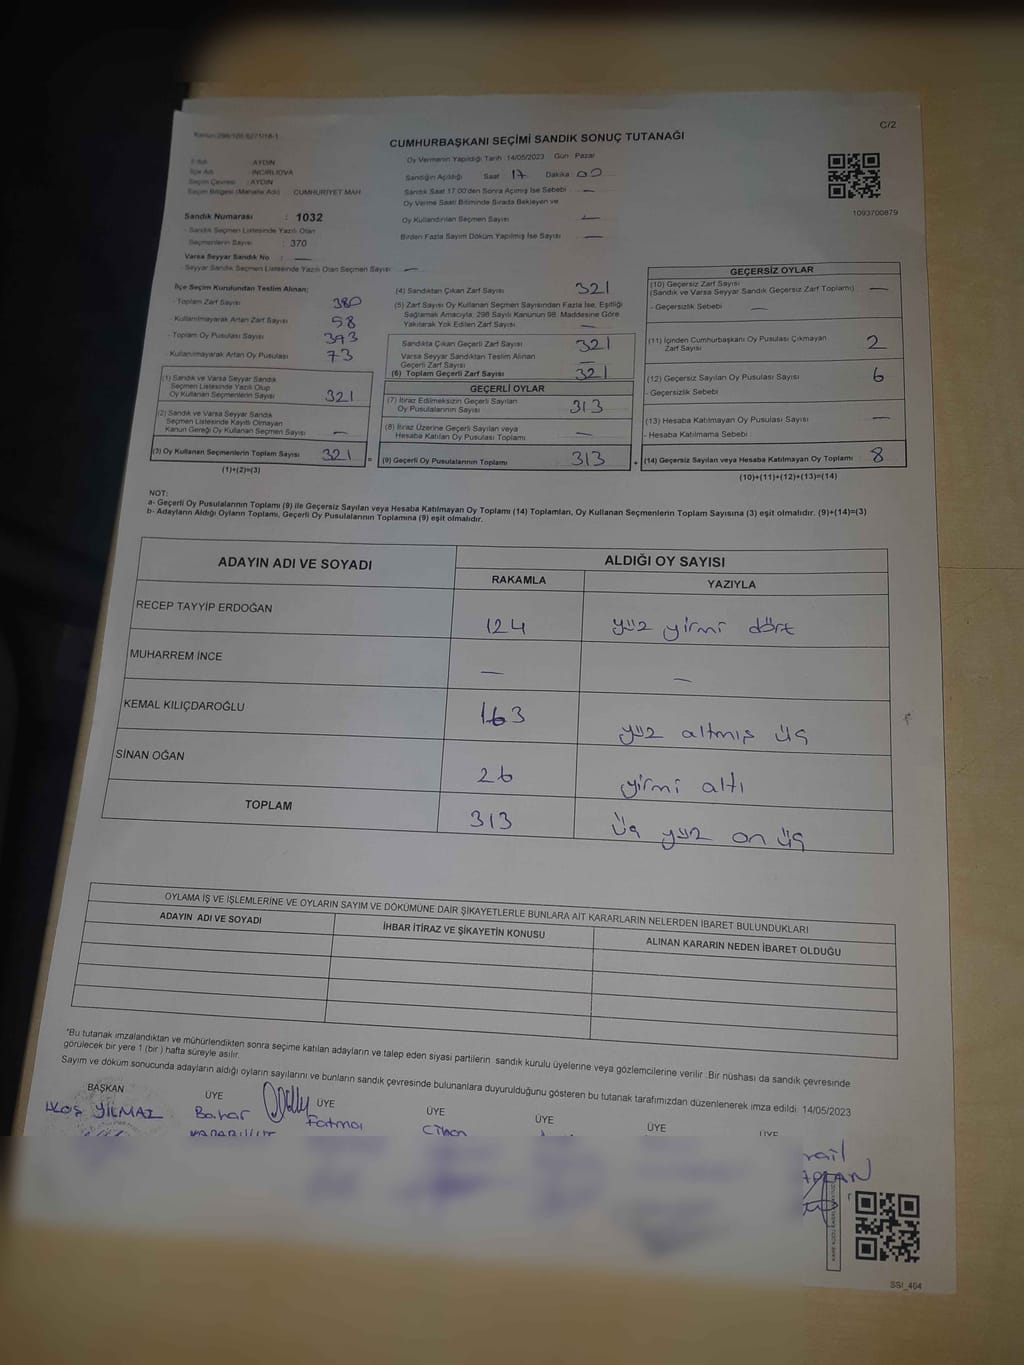 C/2
CUMHURBAŞKANI SEÇİMİ SANDIK SONUÇ TUTANAĞI
Oy Vermenin Yapıldığı Tarih 14/05/2023 Gün Pazar
: AYDIN
İlçe Adı : İNCİRLİOVA
Seçim Çevresi : AYDIN
Seçim Bölgesi (Mahalle Adı) CUMHURİYET MAH
Sandığın Açıldığı Saat 17 Dakika 00
Sandık Saat 17:00'den Sonra Açılmış İse Sebebi —
Oy Verme Saati Bitiminde Sırada Bekleyen ve
Oy Kullandırılan Seçmen Sayısı —
Birden Fazla Sayım Döküm Yapılmış İse Sayısı —
1093700879
Sandık Numarası : 1032
- Sandık Seçmen Listesinde Yazılı Olan
Seçmenlerin Sayısı : 370
Varsa Seyyar Sandık No : —
- Seyyar Sandık Seçmen Listesinde Yazılı Olan Seçmen Sayısı —
İlçe Seçim Kurulundan Teslim Alınan:
- Toplam Zarf Sayısı 380
- Kullanılmayarak Artan Zarf Sayısı 58
- Toplam Oy Pusulası Sayısı 393
- Kullanılmayarak Artan Oy Pusulası 73
(1) Sandık ve Varsa Seyyar Sandık
Seçmen Listesinde Yazılı Olup
Oy Kullanan Seçmenlerin Sayısı 321
(2) Sandık ve Varsa Seyyar Sandık
Seçmen Listesinde Kayıtlı Olmayan
Kanun Gereği Oy Kullanan Seçmen Sayısı —
(3) Oy Kullanan Seçmenlerin Toplam Sayısı 321 =
(1)+(2)=(3)
(4) Sandıktan Çıkan Zarf Sayısı 321
(5) Zarf Sayısı Oy Kullanan Seçmen Sayısından Fazla İse, Eşitliği
Sağlamak Amacıyla, 298 Sayılı Kanunun 98. Maddesine Göre
Yakılarak Yok Edilen Zarf Sayısı —
Sandıkta Çıkan Geçerli Zarf Sayısı 321
Varsa Seyyar Sandıktan Teslim Alınan
Geçerli Zarf Sayısı —
(6) Toplam Geçerli Zarf Sayısı 321
GEÇERLİ OYLAR
(7) İtiraz Edilmeksizin Geçerli Sayılan
Oy Pusulalarının Sayısı 313
(8) İtiraz Üzerine Geçerli Sayılan veya
Hesaba Katılan Oy Pusulası Toplamı —
(9) Geçerli Oy Pusulalarının Toplamı 313 +
GEÇERSİZ OYLAR
(10) Geçersiz Zarf Sayısı
(Sandık ve Varsa Seyyar Sandık Geçersiz Zarf Toplamı) —
- Geçersizlik Sebebi —
(11) İçinden Cumhurbaşkanı Oy Pusulası Çıkmayan
Zarf Sayısı 2
(12) Geçersiz Sayılan Oy Pusulası Sayısı 6
- Geçersizlik Sebebi
(13) Hesaba Katılmayan Oy Pusulası Sayısı —
- Hesaba Katılmama Sebebi
(14) Geçersiz Sayılan veya Hesaba Katılmayan Oy Toplamı 8
(10)+(11)+(12)+(13)=(14)
NOT:
a- Geçerli Oy Pusulalarının Toplamı (9) ile Geçersiz Sayılan veya Hesaba Katılmayan Oy Toplamı (14) Toplamları, Oy Kullanan Seçmenlerin Toplam Sayısına (3) eşit olmalıdır. (9)+(14)=(3)
b- Adayların Aldığı Oyların Toplamı, Geçerli Oy Pusulalarının Toplamına (9) eşit olmalıdır.
ADAYIN ADI VE SOYADI ALDIĞI OY SAYISI
RAKAMLA YAZIYLA
RECEP TAYYİP ERDOĞAN 124 yüz yirmi dört
MUHARREM İNCE — —
KEMAL KILIÇDAROĞLU 163 yüz altmış üç
SİNAN OĞAN 26 yirmi altı
TOPLAM 313 üç yüz on üç
OYLAMA İŞ VE İŞLEMLERİNE VE OYLARIN SAYIM VE DÖKÜMÜNE DAİR ŞİKAYETLERLE BUNLARA AİT KARARLARIN NELERDEN İBARET BULUNDUKLARI
ADAYIN ADI VE SOYADI İHBAR İTİRAZ VE ŞİKAYETİN KONUSU ALINAN KARARIN NEDEN İBARET OLDUĞU
*Bu tutanak imzalandıktan ve mühürlendikten sonra seçime katılan adayların ve talep eden siyasi partilerin sandık kurulu üyelerine veya gözlemcilerine verilir. Bir nüshası da sandık çevresinde
görülecek bir yere 1 (bir) hafta süreyle asılır.
Sayım ve döküm sonucunda adayların aldığı oyların sayılarını ve bunların sandık çevresinde bulunanlara duyurulduğunu gösteren bu tutanak tarafımızdan düzenlenerek imza edildi. 14/05/2023
BAŞKAN ÜYE ÜYE ÜYE ÜYE ÜYE ÜYE
YILMAZ Bahar Fatma Cihan
SSI_464